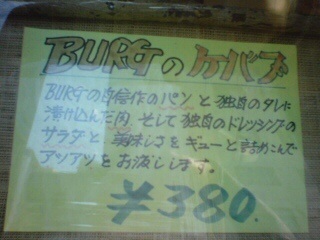 BURGのケバブ
BURGの自信作のパンと独自のタレに
漬け込んだ肉、そして独自のドレッシングの
サラダと美味しさをギューと詰めこんで
アツアツをお渡しします。
¥380.